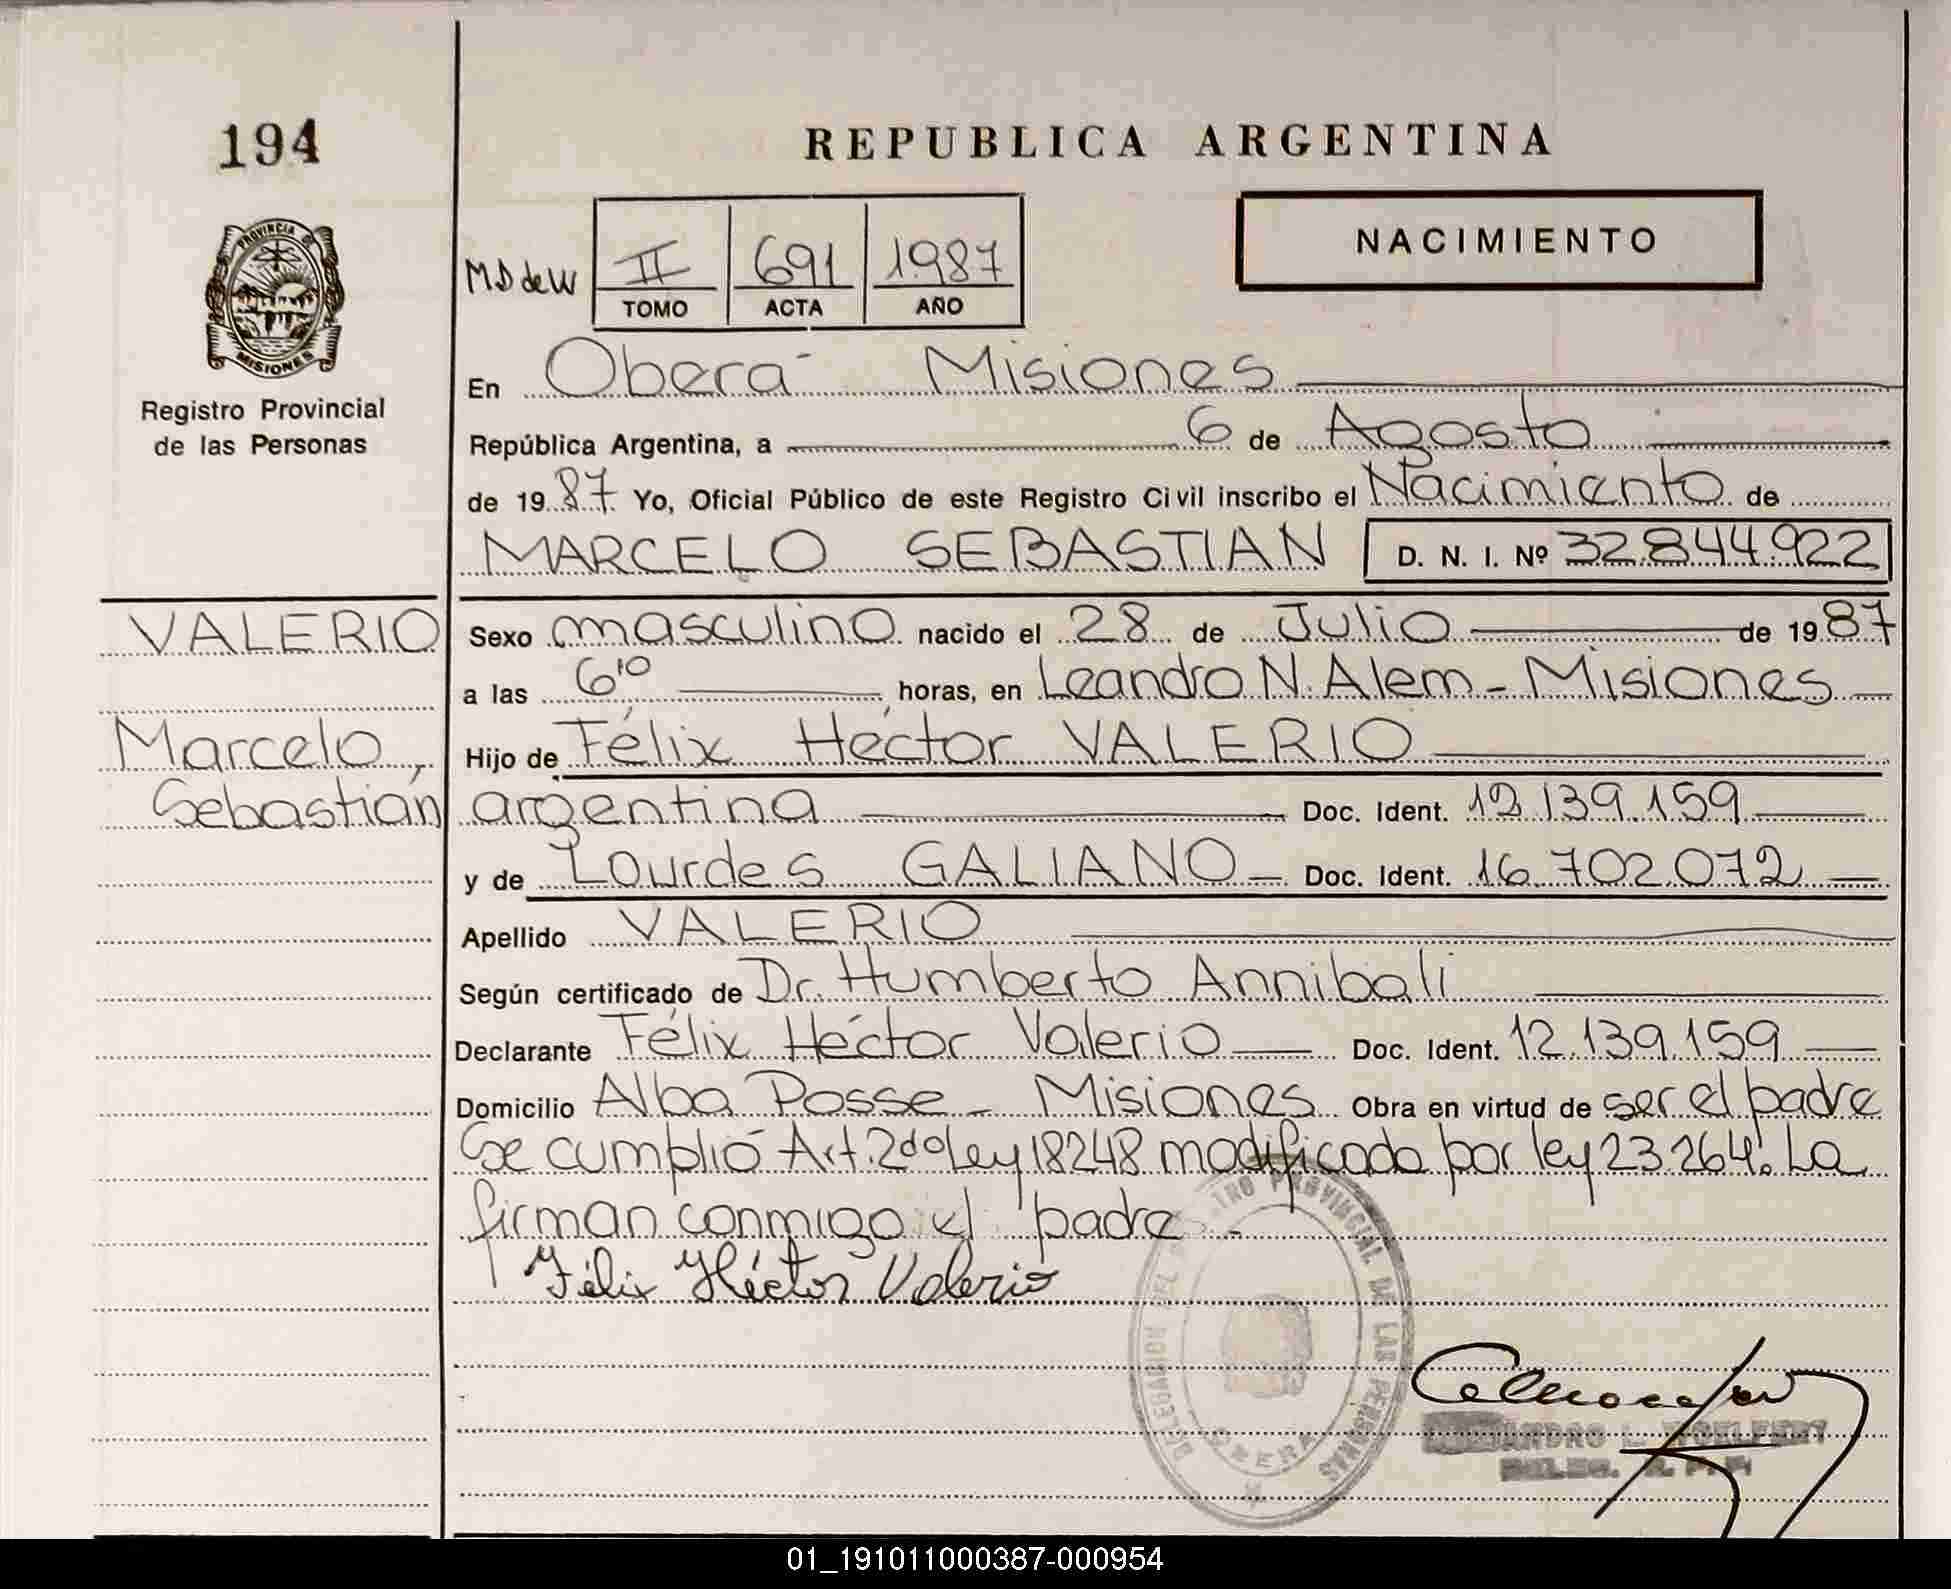 194
REPUBLICA ARGENTINA
PROVINCIA DE
MISIONES
Registro Provincial
de las Personas
MD de W
II 691 1987
TOMO ACTA AÑO
NACIMIENTO
En Oberá Misiones
República Argentina, a 6 de Agosto
de 1987 Yo, Oficial Público de este Registro Civil inscribo el Nacimiento de
MARCELO SEBASTIAN D. N. I. Nº 32.844.922
VALERIO
Marcelo,
Sebastián
Sexo masculino nacido el 28 de Julio de 1987
a las 6,10 horas, en Leandro N. Alem - Misiones
Hijo de Félix Héctor VALERIO
argentina Doc. Ident. 12.139.159
y de Lourdes GALIANO Doc. Ident. 16.702.072
Apellido VALERIO
Según certificado de Dr. Humberto Annibali
Declarante Félix Héctor Valerio Doc. Ident. 12.139.159
Domicilio Alba Posse - Misiones Obra en virtud de ser el padre
Se cumplió Art. 2do ley 18248 modificada por ley 23.264. La
firman conmigo el padre.-
Félix Héctor Valerio
DELEGACION DEL PROVINCIAL DE LAS PERSONAS
OBERA
01_191011000387-000954